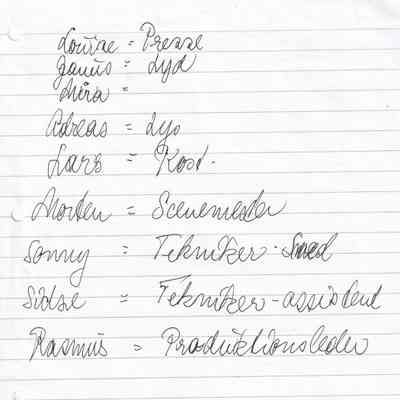 Louise = Presse
Janus = Lyd
Mira =
Adreas = Lys
Lars = Kost.
Morten = Scenemester
Sonny = Tekniker - Smed
Sidse = Tekniker-assistent
Rasmus = Produktionsleder